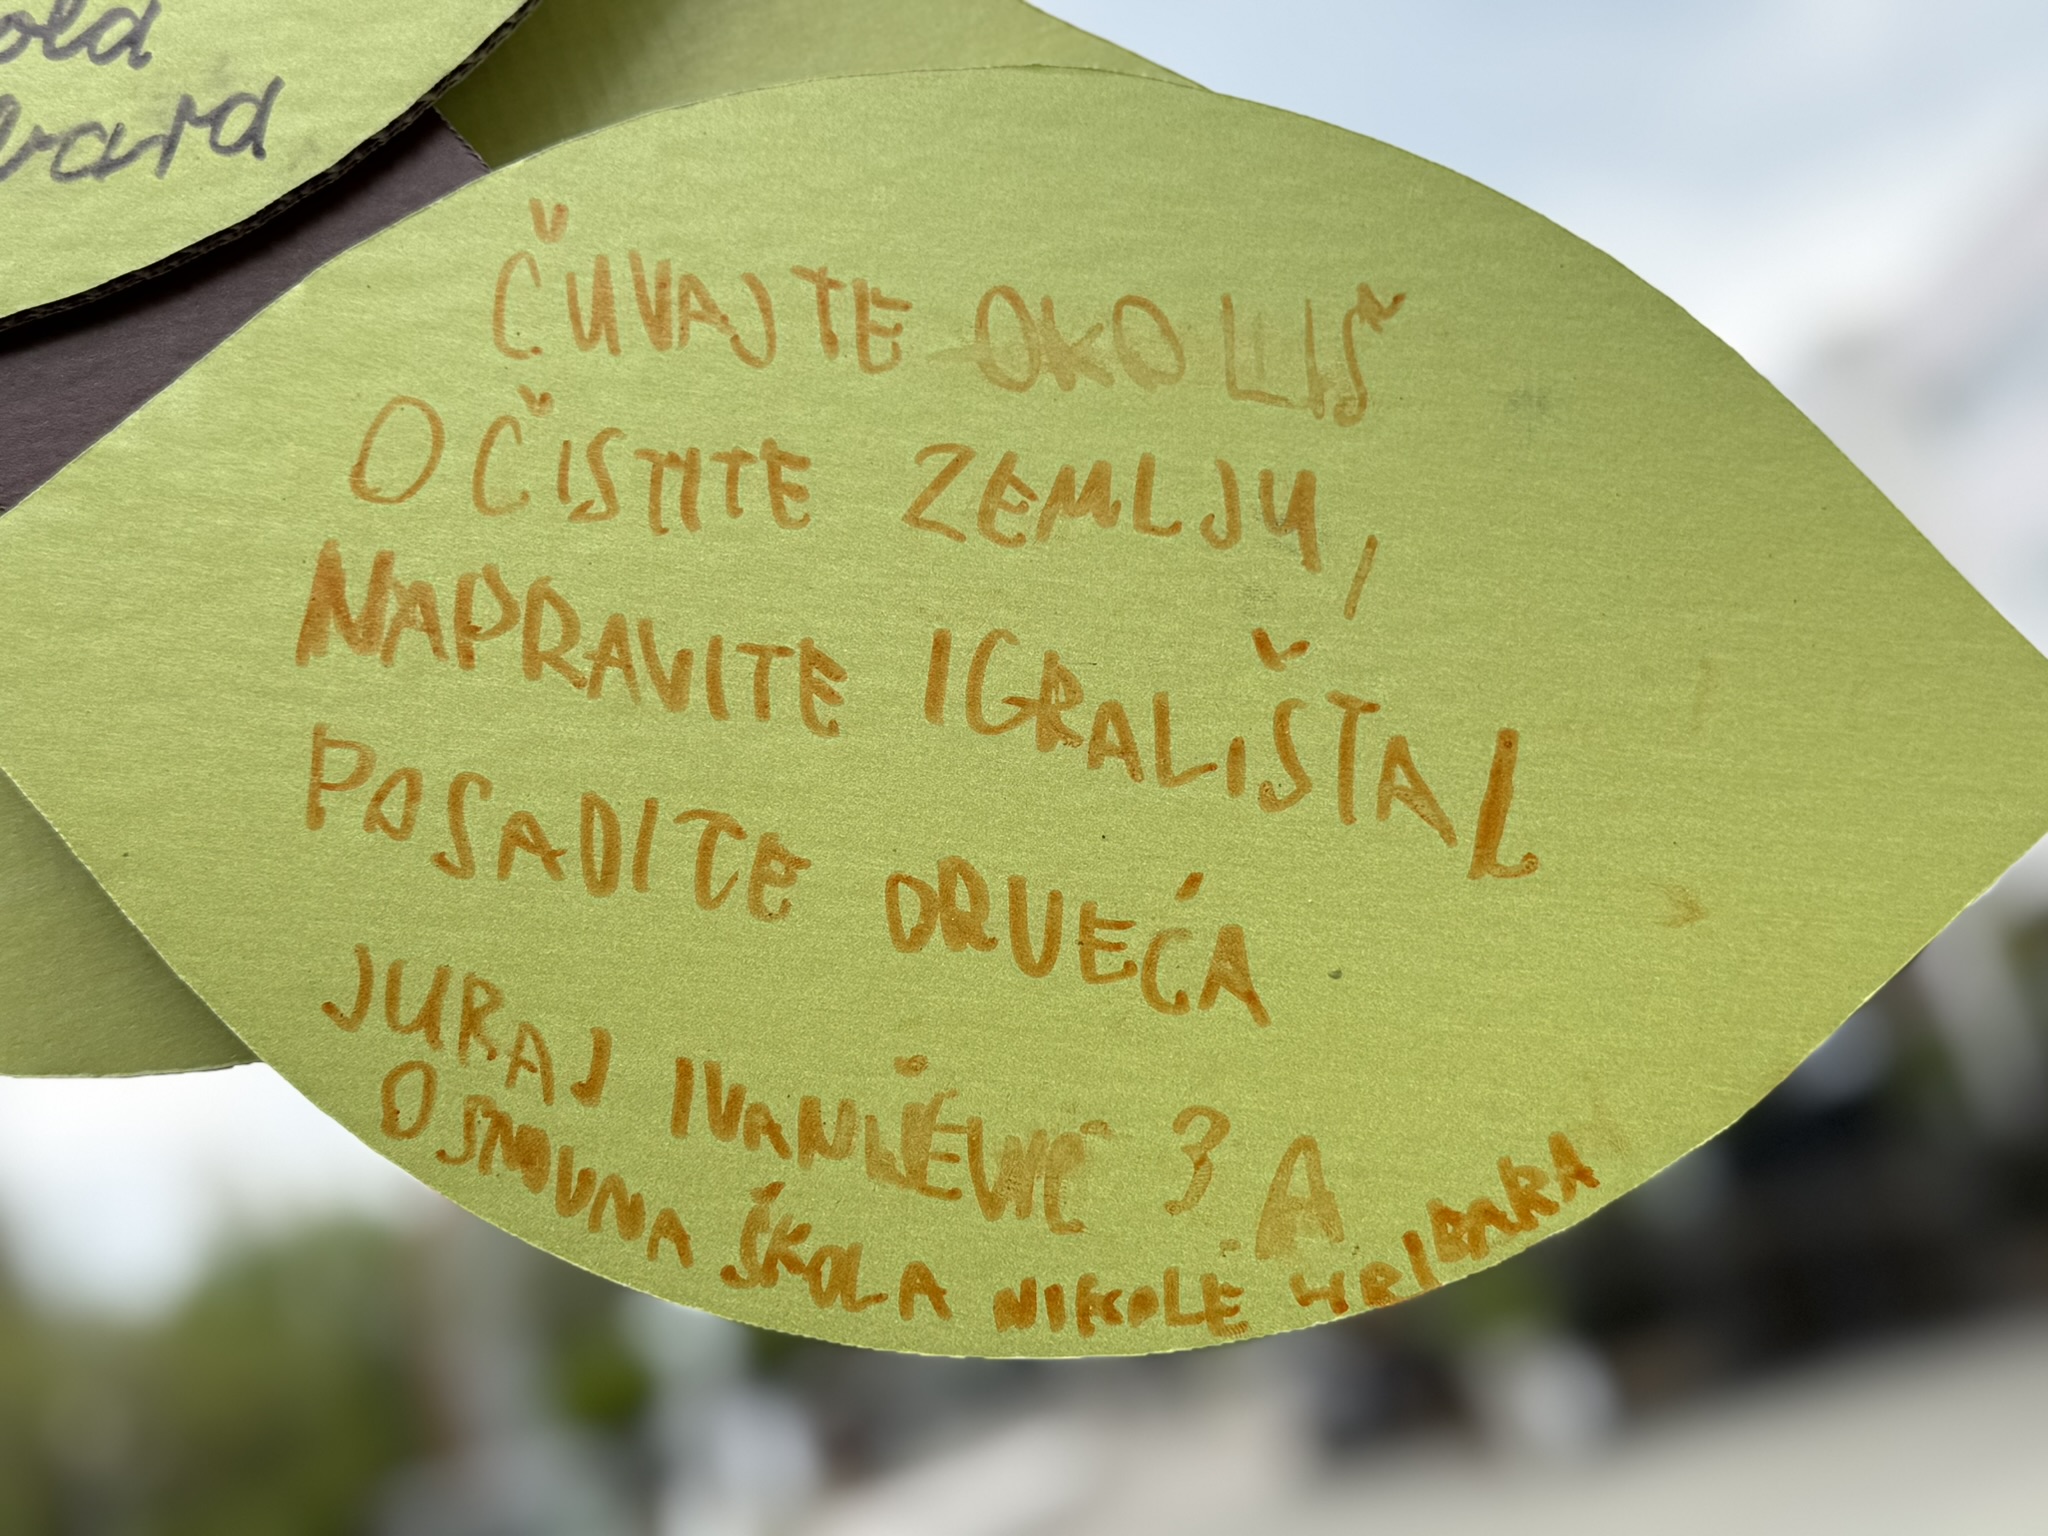 old
vard
ČUVAJTE OKOLIŠ
OČISTITE ZEMLJU,
NAPRAVITE IGRALIŠTA
POSADITE DRVEĆA
JURAJ 3. A
OSNOVNA ŠKOLA NIKOLE HRIBARA